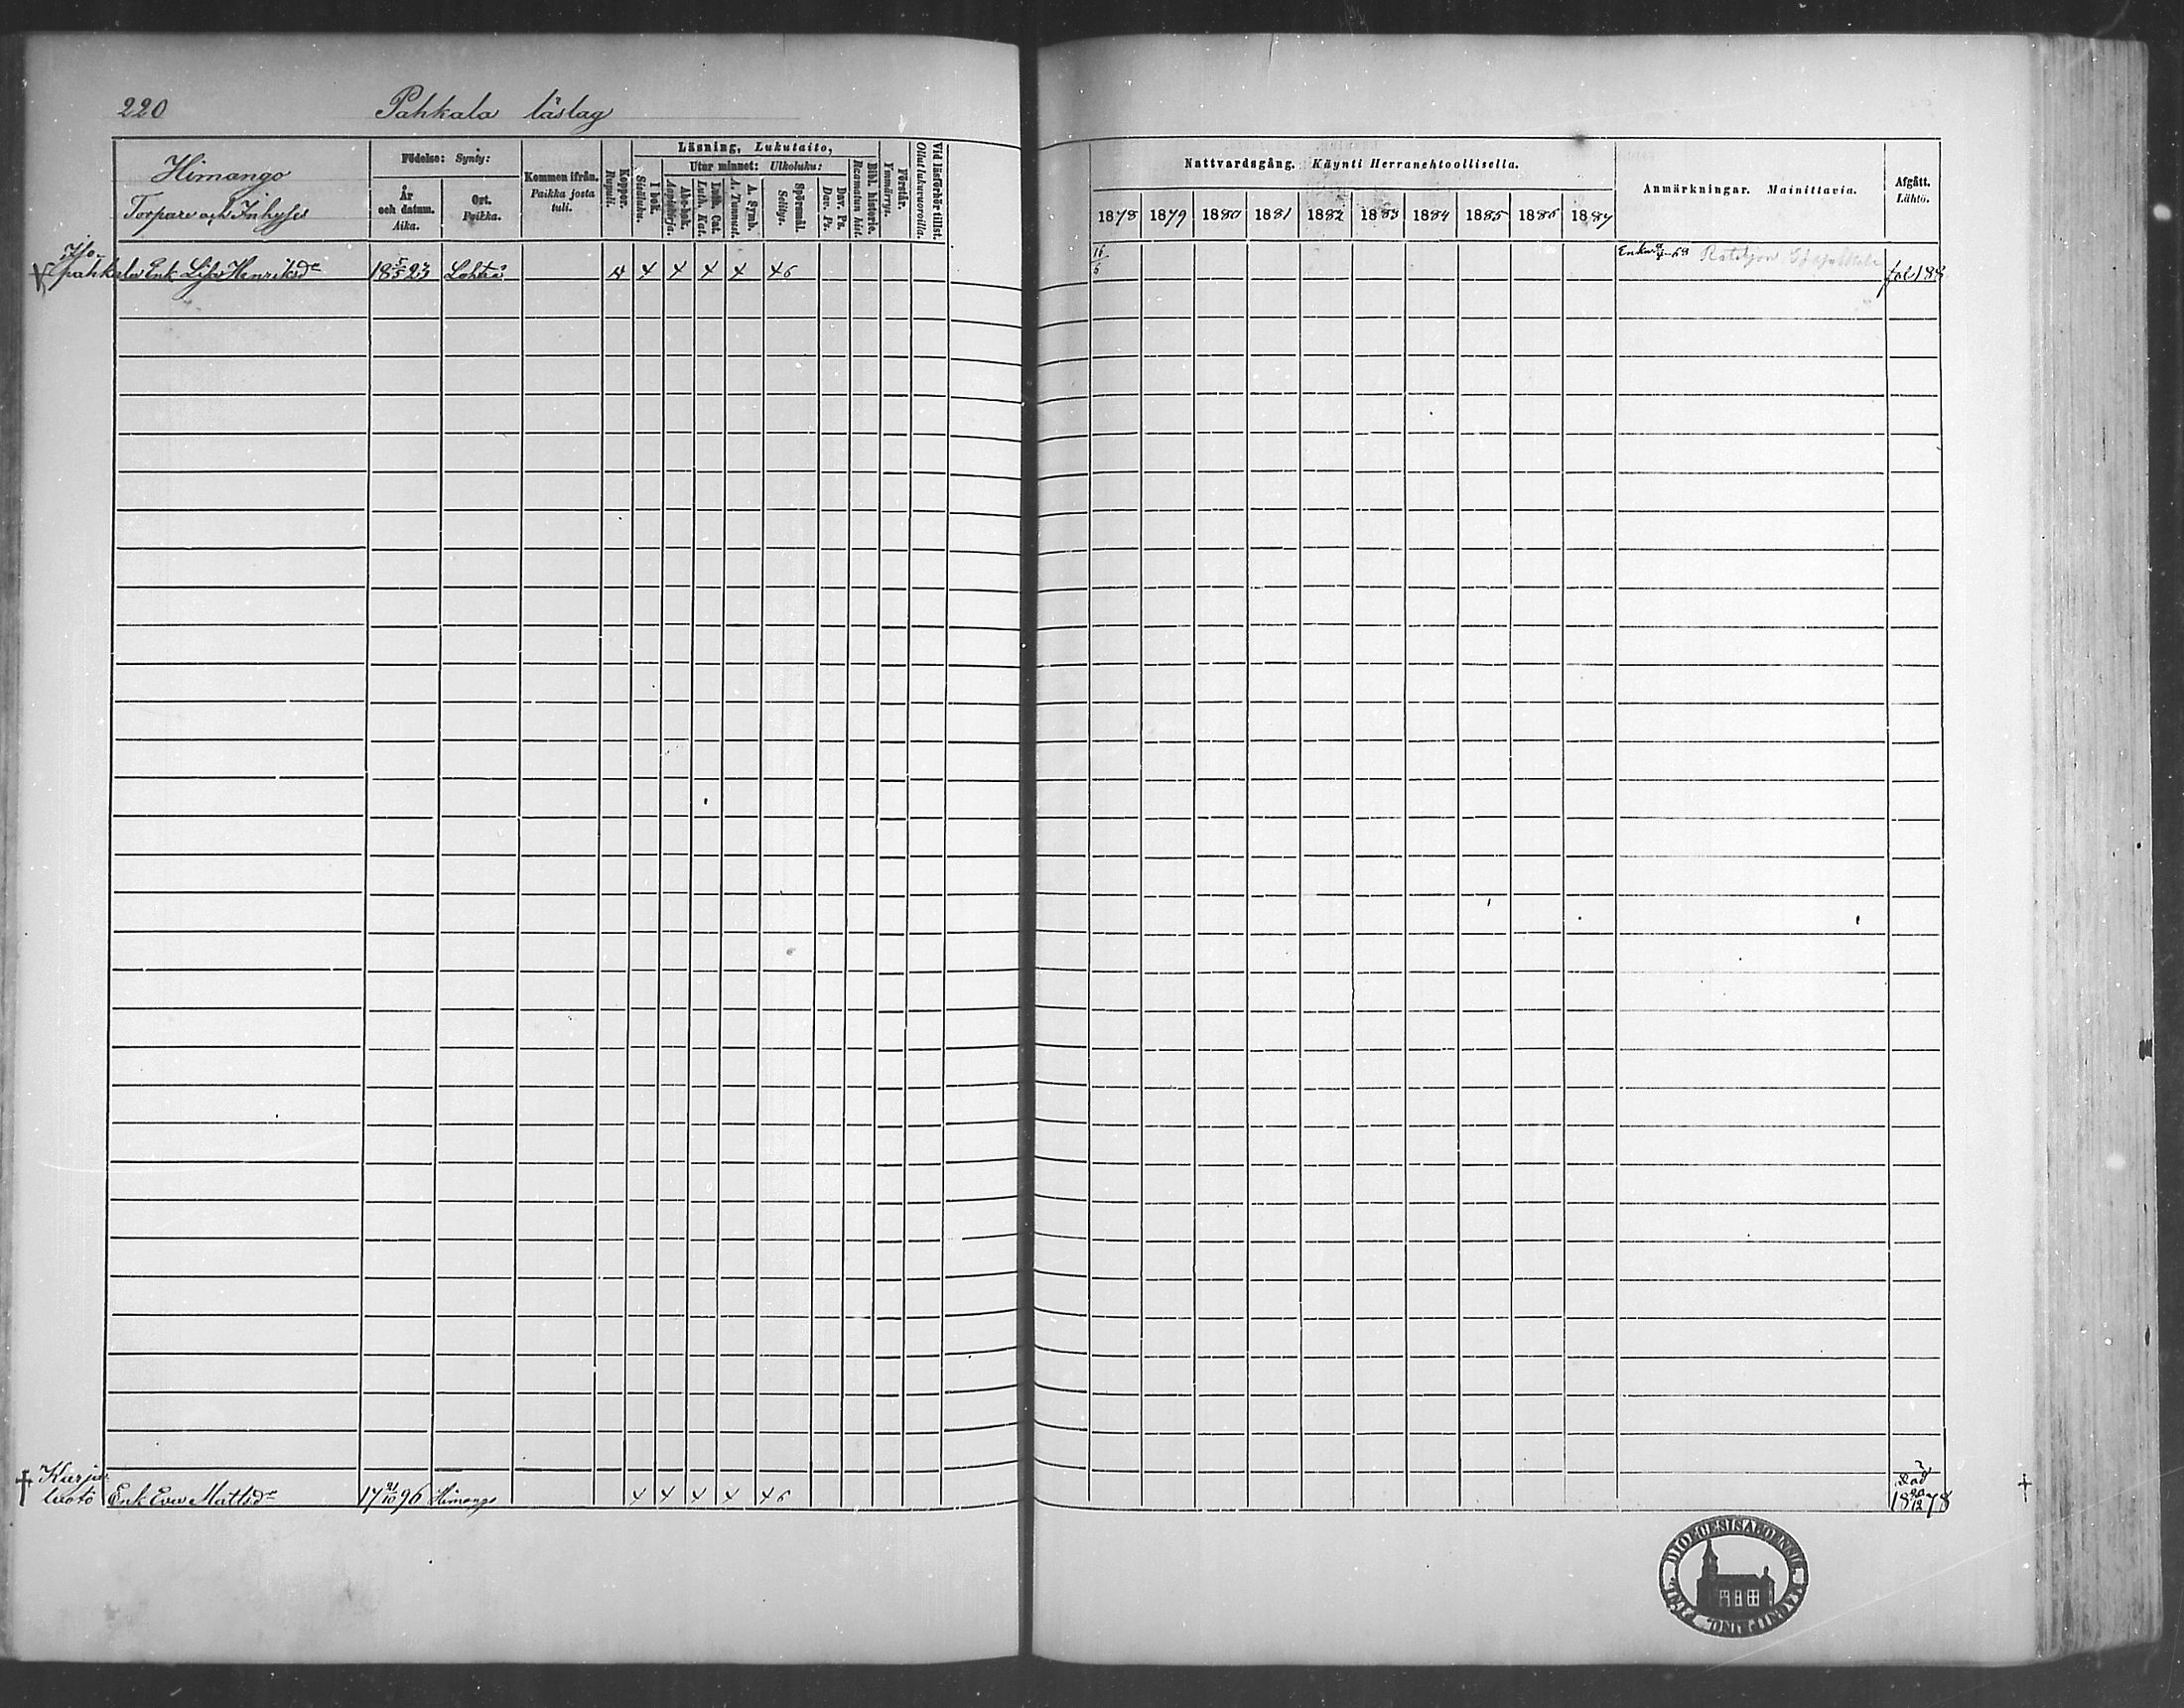 220 Pahkala läslag
Himango
Torpare och Inhyses
Födelse: Synty:
År och datum. Aika.
Ort. Paikka.
Kommen ifrån. Paikka josta tuli.
Koppor. Rupuli.
Läsning, Lukutaito,
I bok. Sisäluku.
Utur minnet: Ulkoluku:
Abc-bok. Aapiskirja.
Luth. Cat. Luth. Kat.
A. Symb. A. Tunnust.
Spörsmål. Selitys.
Dav. Ps. Dav. Ps.
Bibl. historie. Raamatun hist.
Förstår. Ymmärrys.
Vid läsförhör tillst. Ollut lukuvuoroilla.
Nattvardsgång. Käynti Herranehtoollisella.
1878 1879 1880 1881 1882 1883 1884 1885 1886 1887
Anmärkningar. Mainittavia.
Afgått. Lähtö.
Iso-
pahkala Enk Lisa Henriksdr 18 5/5 23 Lohteå 4 4 4 4 4 6 16/6 Enka fol 188
Karja
luoto Enk Eva Mattsdr 17 21/10 96 Himango 4 4 4 4 4 6 död
18 20/12 78
DIOECESIS ABOENSIS MAGNI PRINC. FINL.